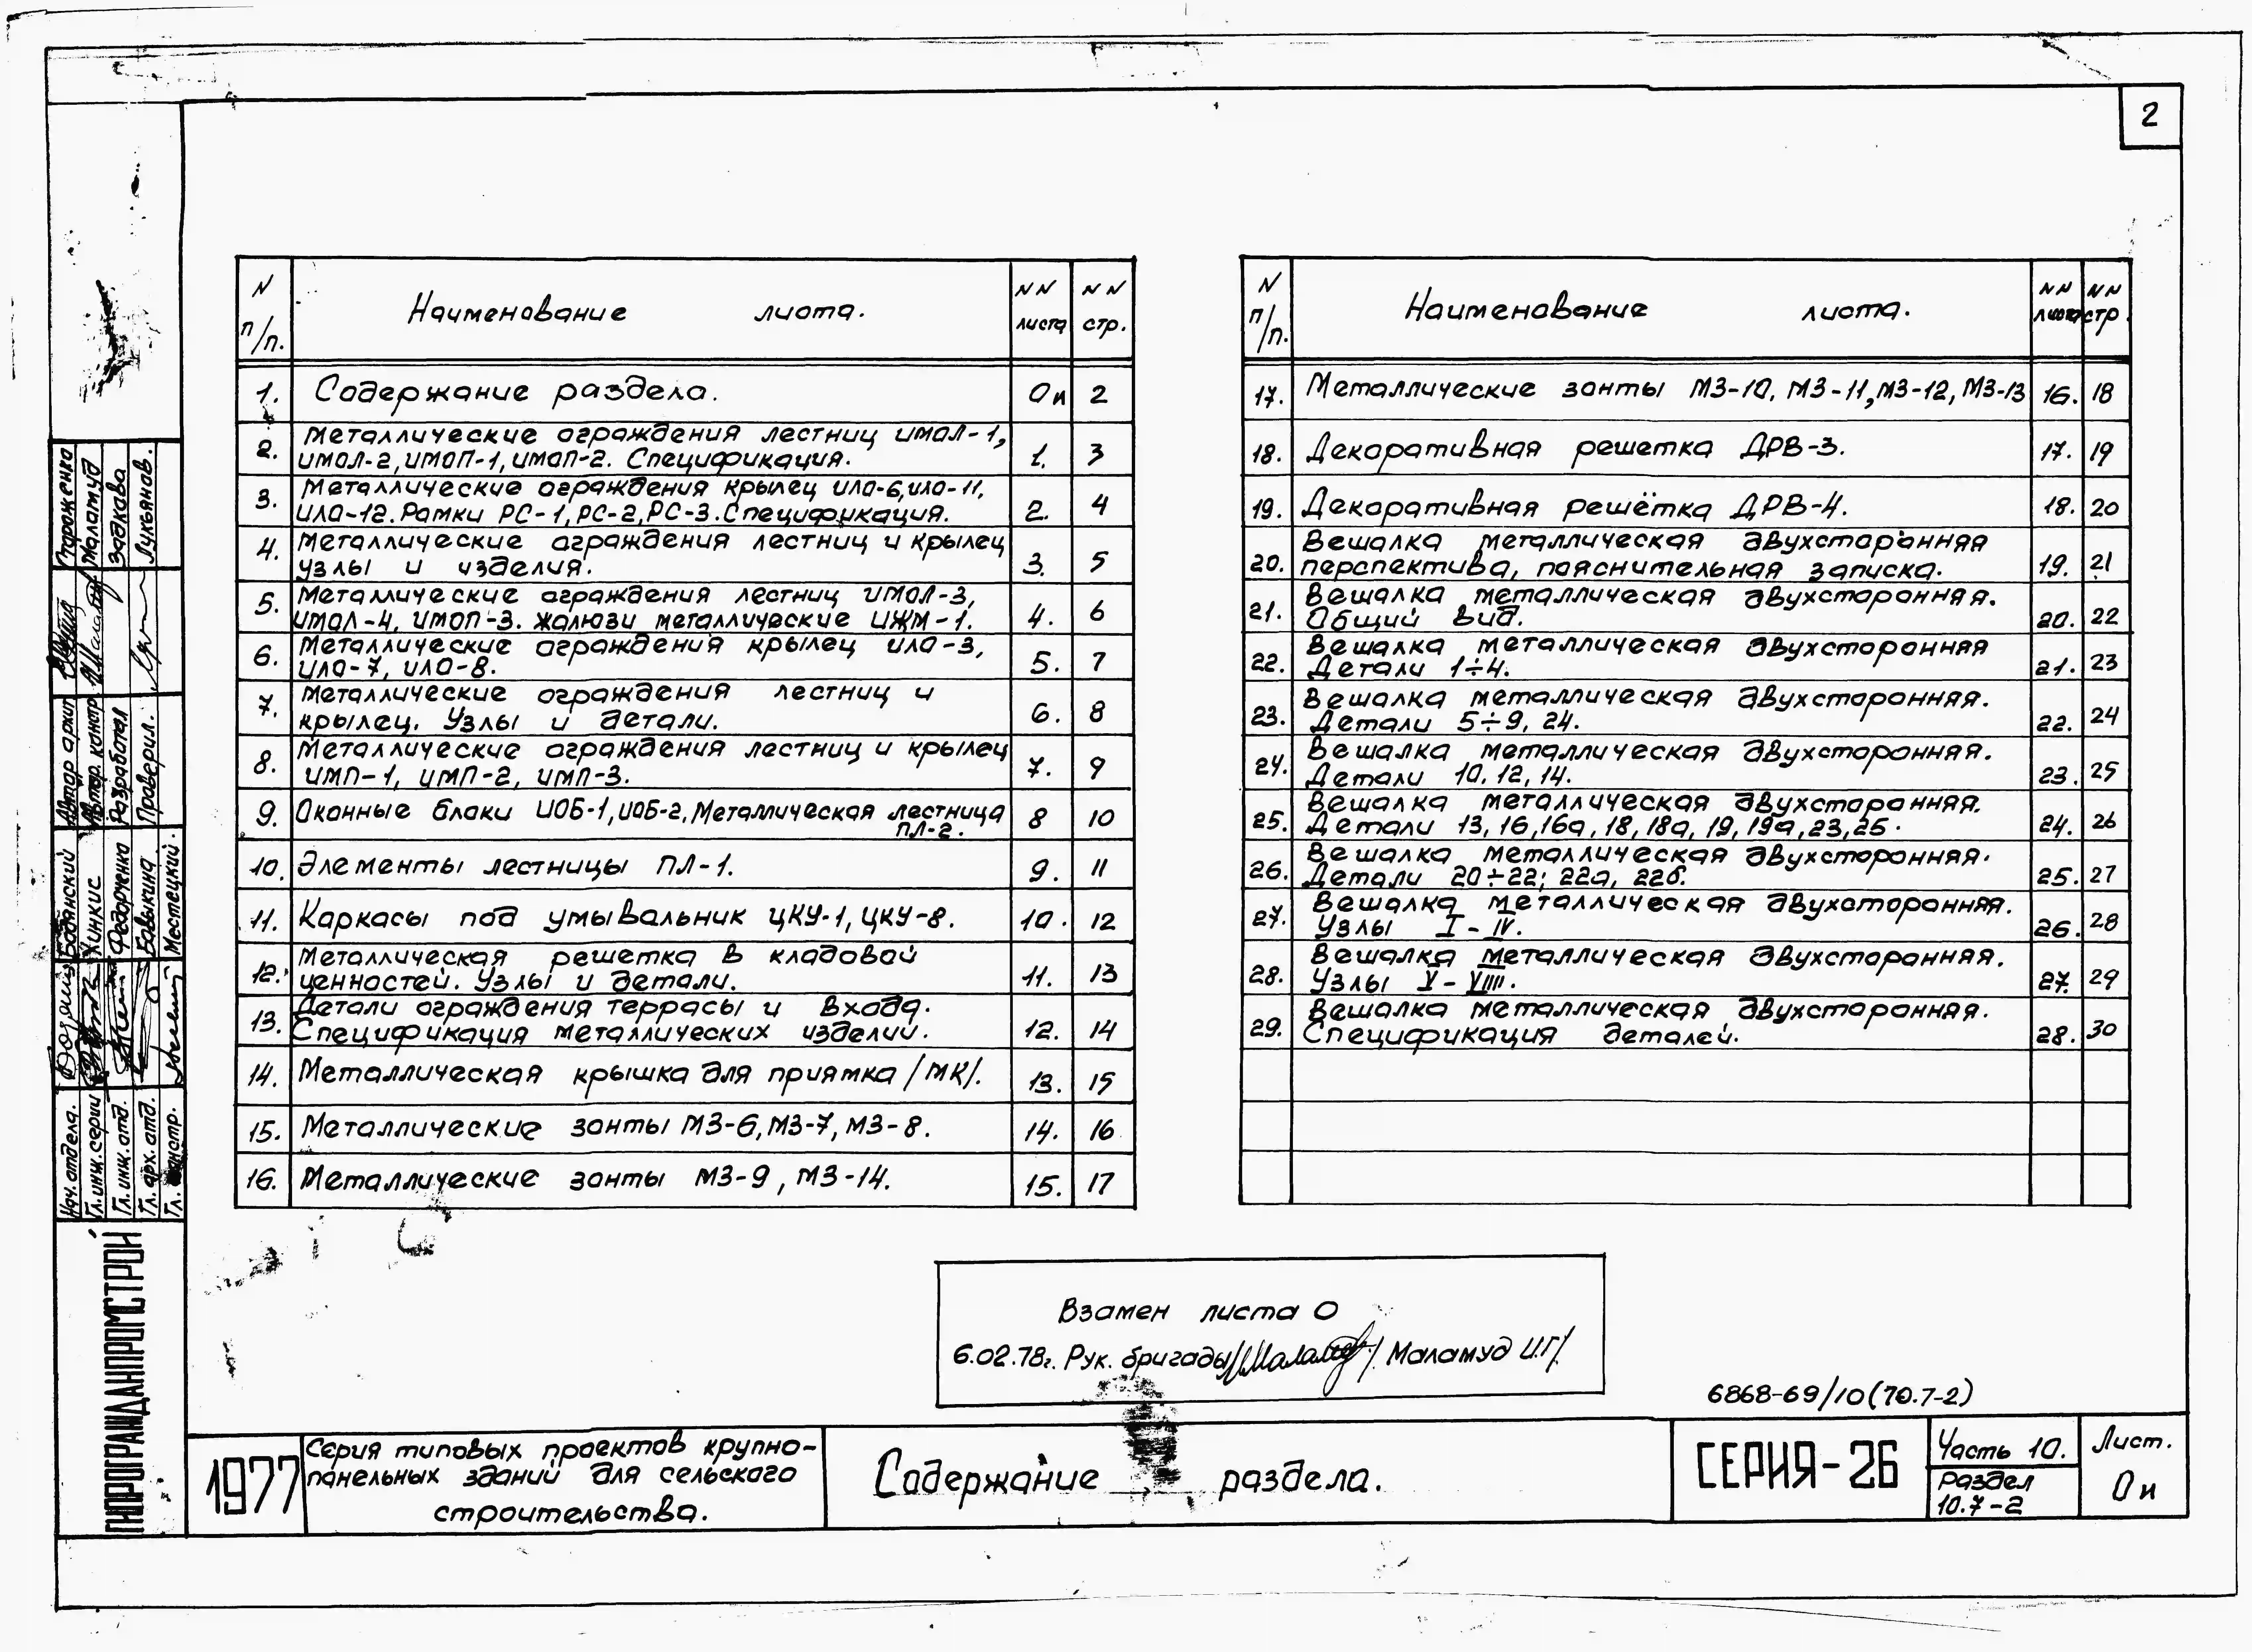 2
N п/п. Наименование листа. NN листа NN стр.
1. Содержание раздела. 0и 2
2. Металлические ограждения лестниц ИМОЛ-1,
ИМОЛ-2, ИМОП-1, ИМОП-2. Спецификация. 1. 3
3. Металлические ограждения крылец ИЛО-6, ИЛО-11,
ИЛО-12. Рамки РС-1, РС-2, РС-3. Спецификация. 2. 4
4. Металлические ограждения лестниц и крылец
узлы и изделия. 3. 5
5. Металлические ограждения лестниц ИМОЛ-3,
ИМОЛ-4, ИМОП-3. Жалюзи металлические ИЖМ-1. 4. 6
6. Металлические ограждения крылец ИЛО-3,
ИЛО-7, ИЛО-8. 5. 7
7. Металлические ограждения лестниц и
крылец. Узлы и детали. 6. 8
8. Металлические ограждения лестниц и крылец
ИМП-1, ИМП-2, ИМП-3. 7. 9
9. Оконные блоки ИОБ-1, ИОБ-2, Металлическая лестница
ПЛ-2. 8 10
10. Элементы лестницы ПЛ-1. 9. 11
11. Каркасы под умывальник ЦКУ-1, ЦКУ-8. 10. 12
12. Металлическая решетка в кладовой
ценностей. Узлы и детали. 11. 13
13. Детали ограждения террасы и входа.
Спецификация металлических изделий. 12. 14
14. Металлическая крышка для приямка /МК/. 13. 15
15. Металлические зонты МЗ-6, МЗ-7, МЗ-8. 14. 16
16. Металлические зонты МЗ-9, МЗ-14. 15. 17
N п/п. Наименование листа. NN листа NN стр.
17. Металлические зонты МЗ-10, МЗ-11, МЗ-12, МЗ-13 16. 18
18. Декоративная решетка ДРВ-3. 17. 19
19. Декоративная решётка ДРВ-4. 18. 20
20. Вешалка металлическая двухсторонняя
перспектива, пояснительная записка. 19. 21
21. Вешалка металлическая двухсторонняя.
Общий вид. 20. 22
22. Вешалка металлическая двухсторонняя
Детали 1÷4. 21. 23
23. Вешалка металлическая двухсторонняя.
Детали 5÷9, 24. 22. 24
24. Вешалка металлическая двухсторонняя.
Детали 10, 12, 14. 23. 25
25. Вешалка металлическая двухсторонняя.
Детали 13, 16, 16а, 18, 18а, 19, 19а, 23, 25. 24. 26
26. Вешалка металлическая двухсторонняя.
Детали 20÷22; 22а, 22б. 25. 27
27. Вешалка металлическая двухсторонняя.
Узлы I - IV. 26. 28
28. Вешалка металлическая двухсторонняя.
Узлы V - VIII. 27. 29
29. Вешалка металлическая двухсторонняя.
Спецификация деталей. 28. 30
Взамен листа 0
6.02.78г. Рук. бригады /Маламуд И.Г/.
6868-69/10 (70.7-2)
1977
Серия типовых проектов крупно-
панельных зданий для сельского
строительства.
Содержание раздела.
СЕРИЯ-26
Часть 10.
Раздел
10.7-2
Лист.
0и
ГИПРОГРАЖДАНПРОМСТРОЙ
Нач. отдела. Бодянский
Гл. инж. серии Хинкис
Гл. инж. отд. Федорченко
Гл. арх. отд. Бавыкина
Гл. констр. Местецкий.
Автор архит
Автор. констр. Маламуд
Разработал Задкова
Проверил. Лукьянов.